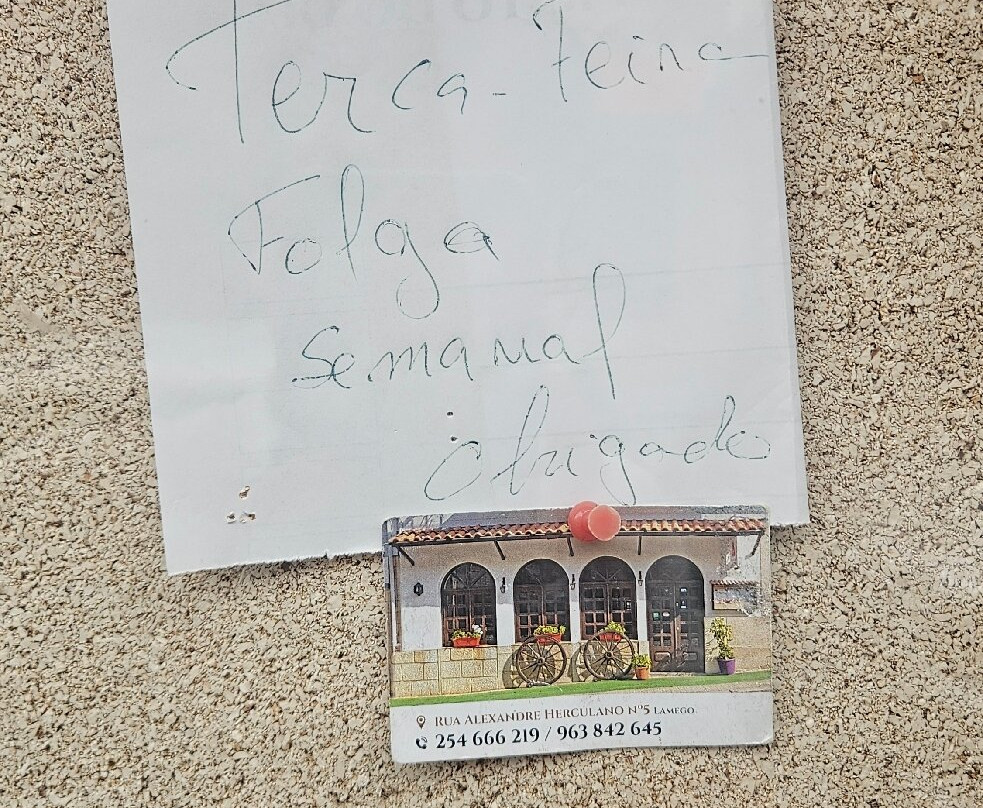 Terca-Feira
Folga
semanal
Obrigado
RUA ALEXANDRE HERCULANO Nº5 LAMEGO.
254 666 219 / 963 842 645